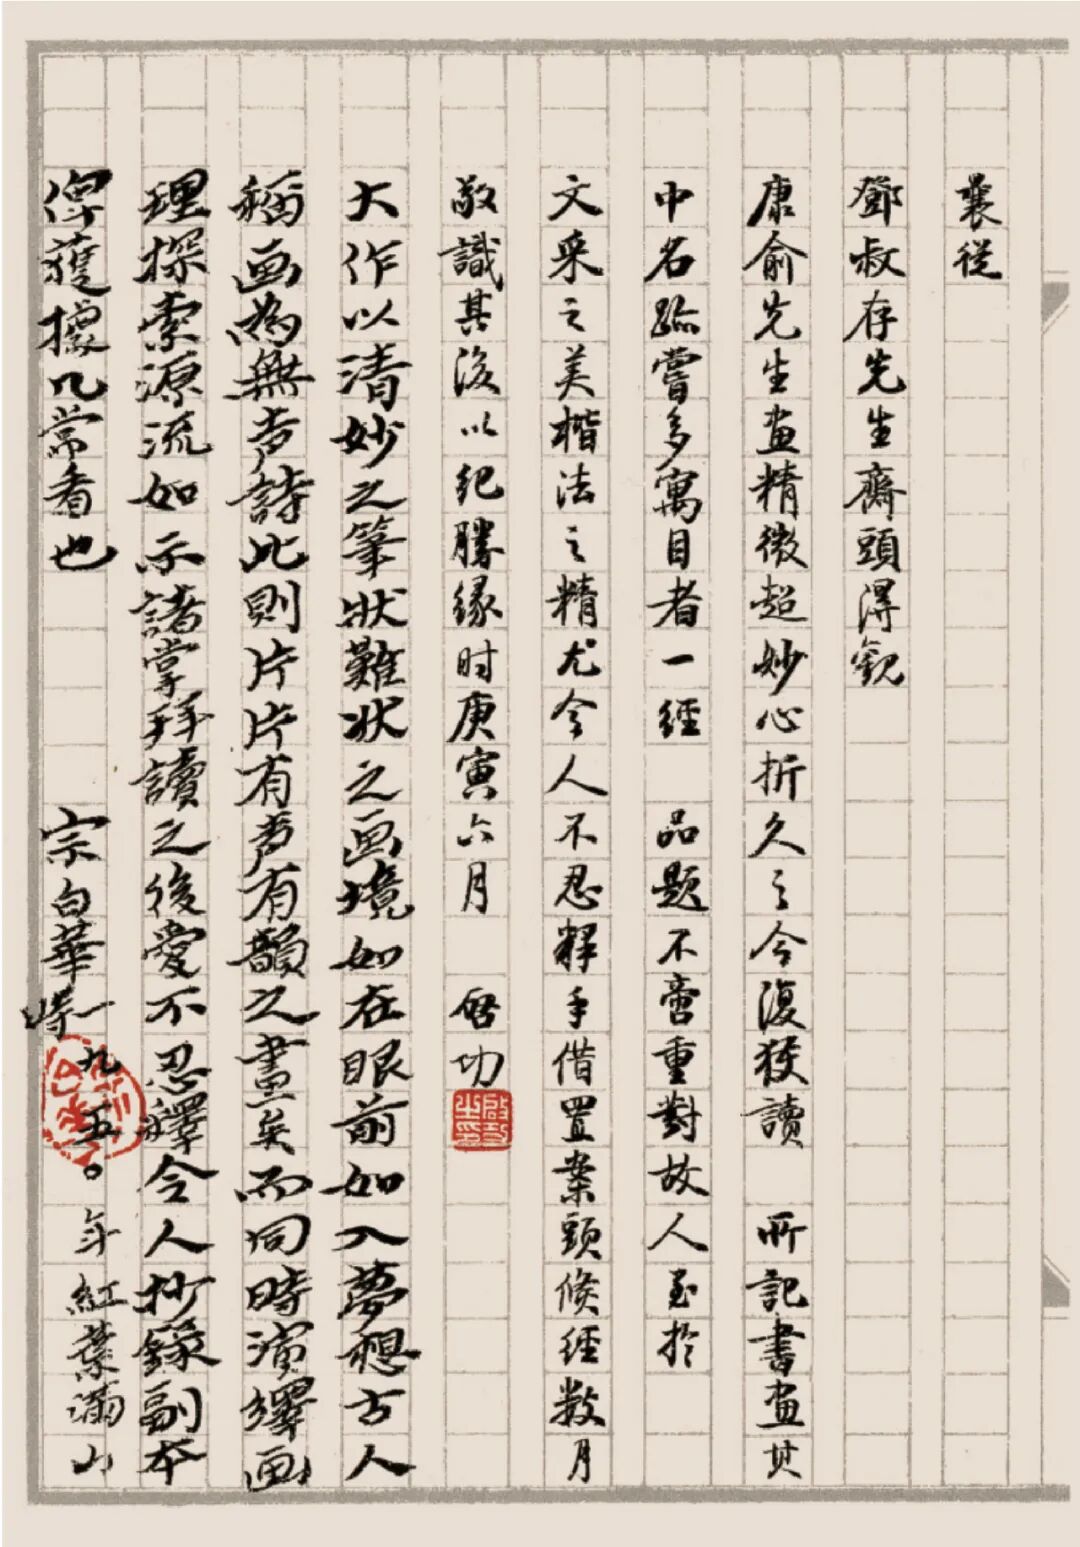 曩从
鄧叔存先生齋頭得觀
康俞先生画精微超妙心折久之今復獲讀 所記書画其
中名蹟嘗多寓目者一經 品題不啻重對故人至於
文采之美楷法之精尤令人不忍釋手借置案頭倏經数月
敬識其後以紀勝緣时庚寅六月 启功
大作以清妙之筆狀難狀之画境如在眼前如入夢想古人
稱画為無声詩此則片片有声有韻之畫矣而同時演繹画
理探索源流如示諸掌拜讀之後愛不忍釋令人抄錄副本
俾獲據几常看也 宗白華 時一九五〇年紅葉滿山
啟功之印